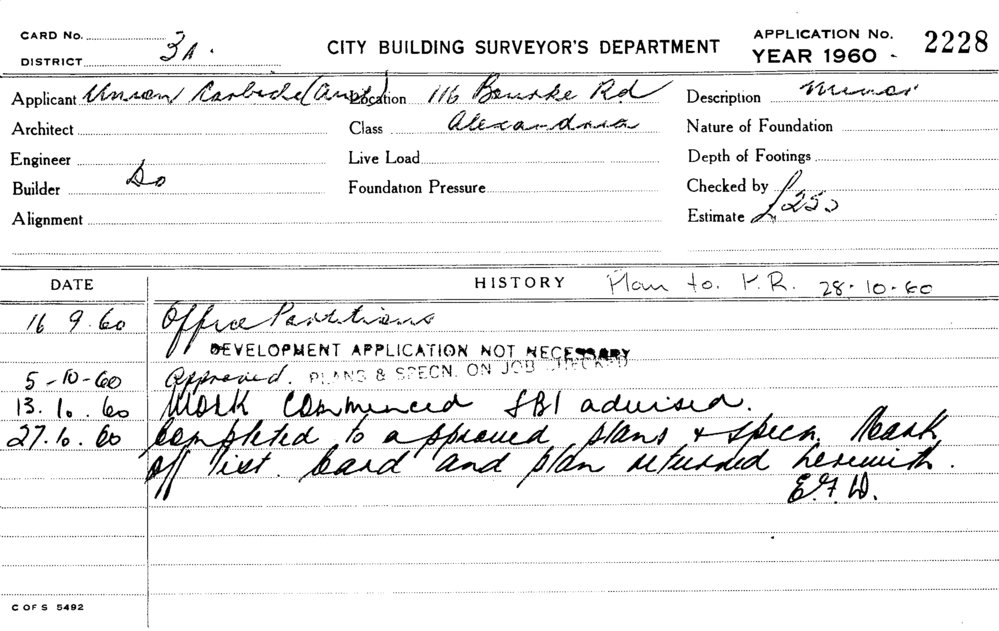 CARD No.
DISTRICT 3A.
CITY BUILDING SURVEYOR'S DEPARTMENT
APPLICATION No. 2228
YEAR 1960 -
Applicant Union Carbide (Aust) Location 116 Bourke Rd Description Minor
Architect Class Alexandria Nature of Foundation
Engineer Live Load Depth of Footings
Builder Do Foundation Pressure Checked by
Alignment Estimate £250
DATE HISTORY Plan to. H.R. 28-10-60
16 9. 60 Office Partitions
DEVELOPMENT APPLICATION NOT NECESSARY
5-10-60 Approved. PLANS & SPECN. ON JOB CHECKED
13. 10. 60 Work commenced SBI advised.
27. 10. 60 Completed to approved plans & specn. Mark
off list. Card and plan returned herewith.
C OF S 5492